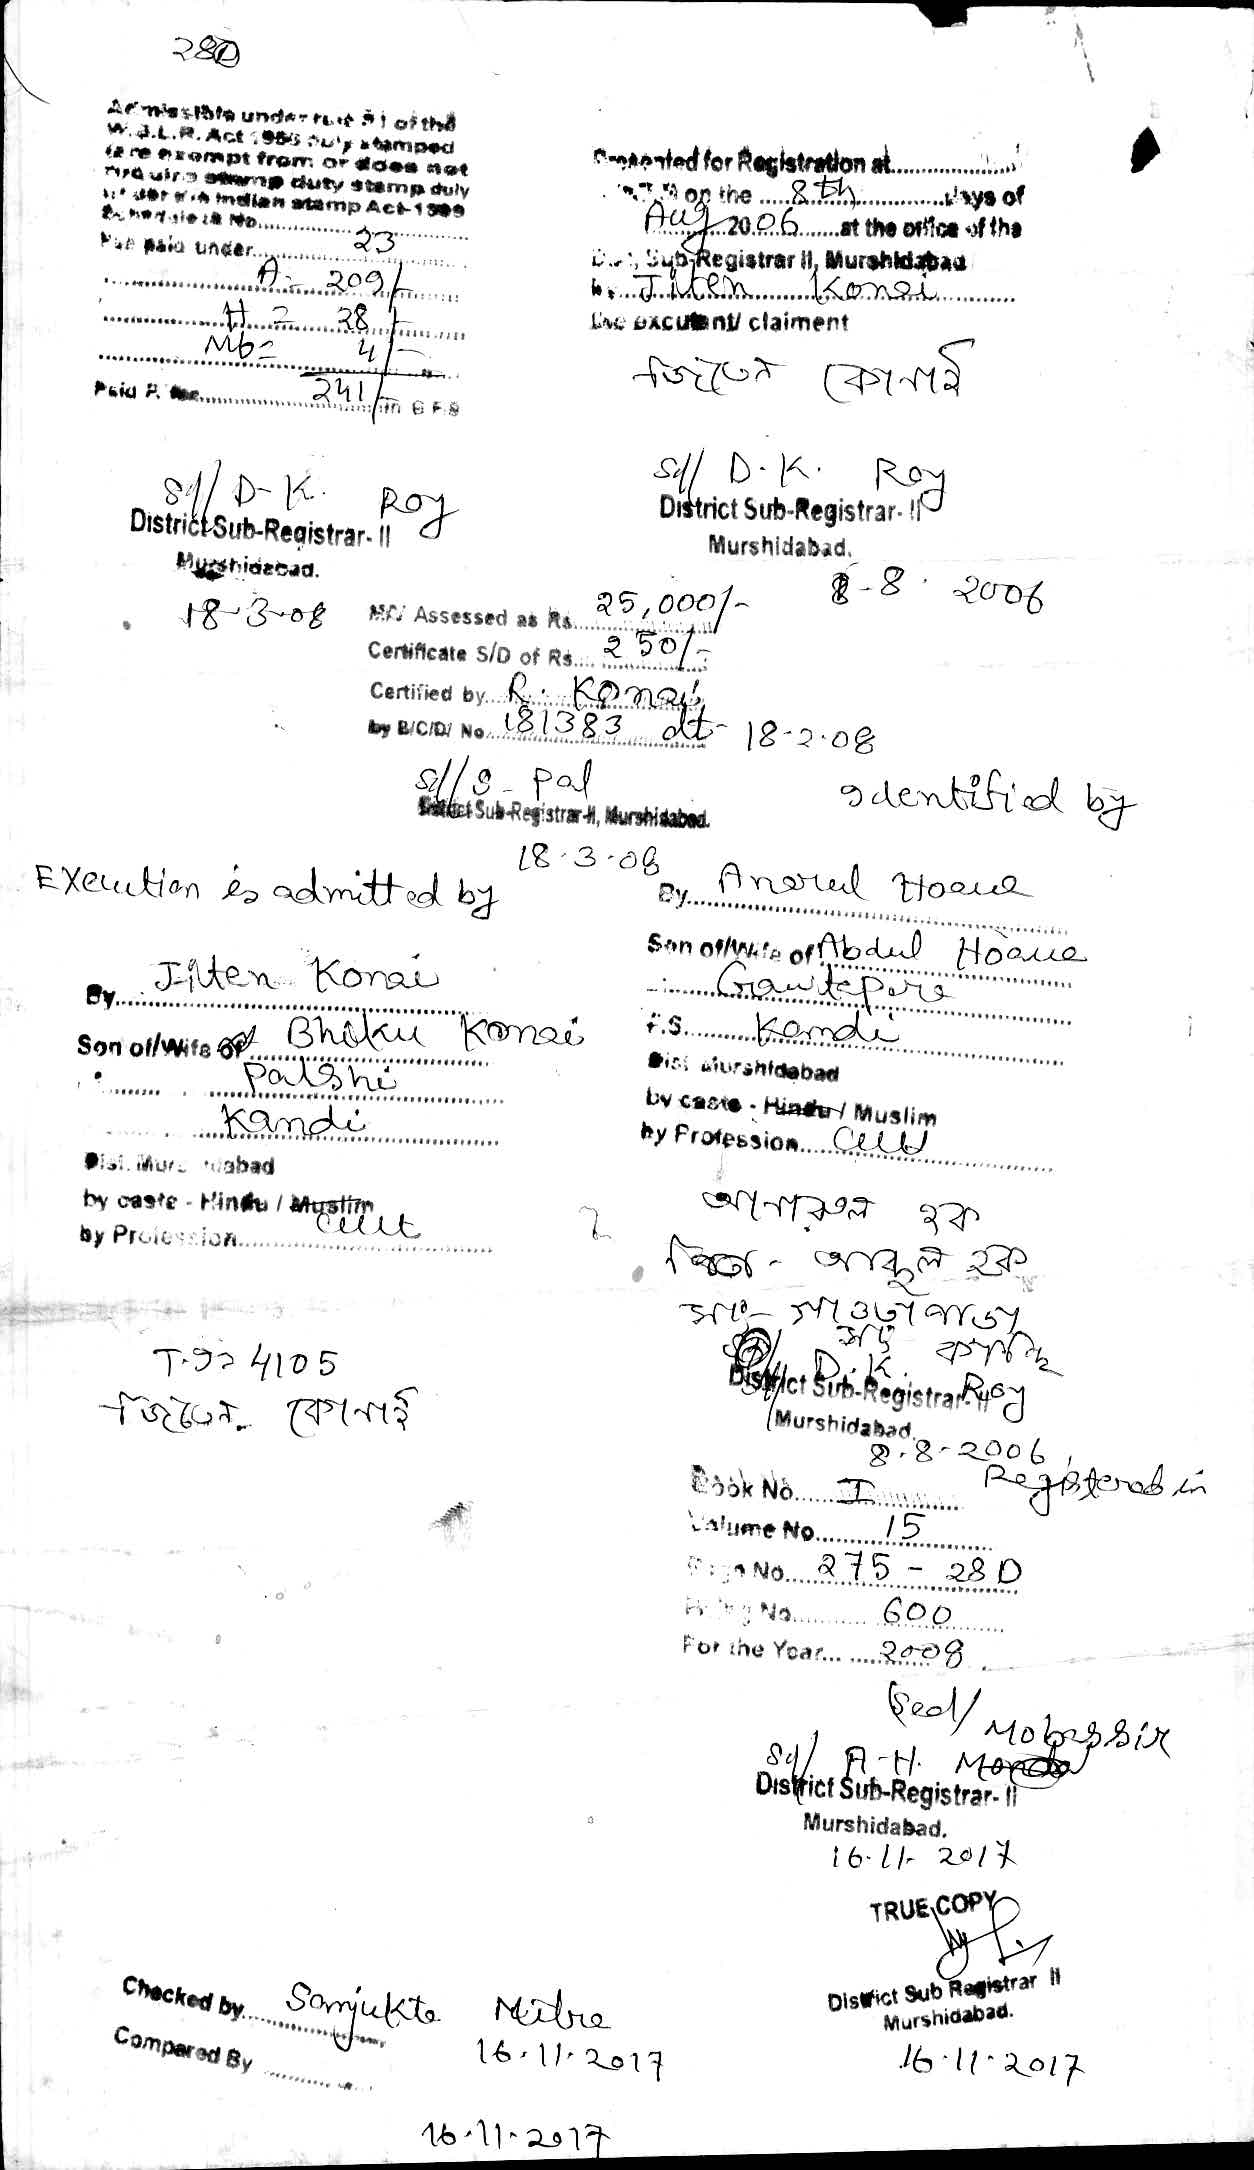 280
Admissible under rule 21 of the
W.B.L.R. Act 1955 Duly stamped
are exempt from or does not
require stamp duty stamp duly
under the Indian stamp Act-1899
Schedule IA No............
Fee paid under.........23
A = 209/-
H = 28/-
Mb = 4/-
Paid P. fee..........241/- in C F S
Sd/ D-K. Roy
District Sub-Registrar-II
Murshidabad.
18-3-08
Presented for Registration at................
on the ....8th..........days of
Aug 2006......at the office of the
Dist, Sub-Registrar II, Murshidabad
by Jiten Konai
the excutant/ claiment
জিতেন কোনাই
Sd/ D.K. Roy
District Sub-Registrar-II
Murshidabad.
8-8. 2006
MV Assessed as Rs. 25,000/-
Certificate S/D of Rs.... 250/-
Certified by.. R. Konai
by B/C/D/ No. 181383 dt- 18-2-08
sd/ S- Pal
District Sub-Registrar-II, Murshidabad.
18.3.08
Execution is admitted by
By Jiten Konai
Son of/Wife of Bhiku Konai
Palshi
Kandi
Dist. Murshidabad
by caste - Hindu / Muslim
by Profession.......Cult
T.নং 4105
জিতেন কোনাই
Identified by
By Anarul Hoque
Son of/Wife of Abdul Hoque
P.S....Kandi
Dist Murshidabad
by caste - Hindu / Muslim
by Profession...Cult
আনারুল হক
পিতা - আব্দুল হক
সাং - সাওতাপাড়া
কান্দি
D.K. Roy
District Sub-Registrar-II
Murshidabad.
8.8-2006
Registered in
Book No......I
Volume No........15
Page No....275 - 280
Being No..........600
For the Year......2008
(Sed/ Mobassir
Sd/ A-H.
District Sub-Registrar-II
Murshidabad.
16.11-2017
TRUE COPY
District Sub Registrar II
Murshidabad.
16.11.2017
Checked by... Sanjukta Mitra
16.11.2017
Compared By ............
16.11.2017